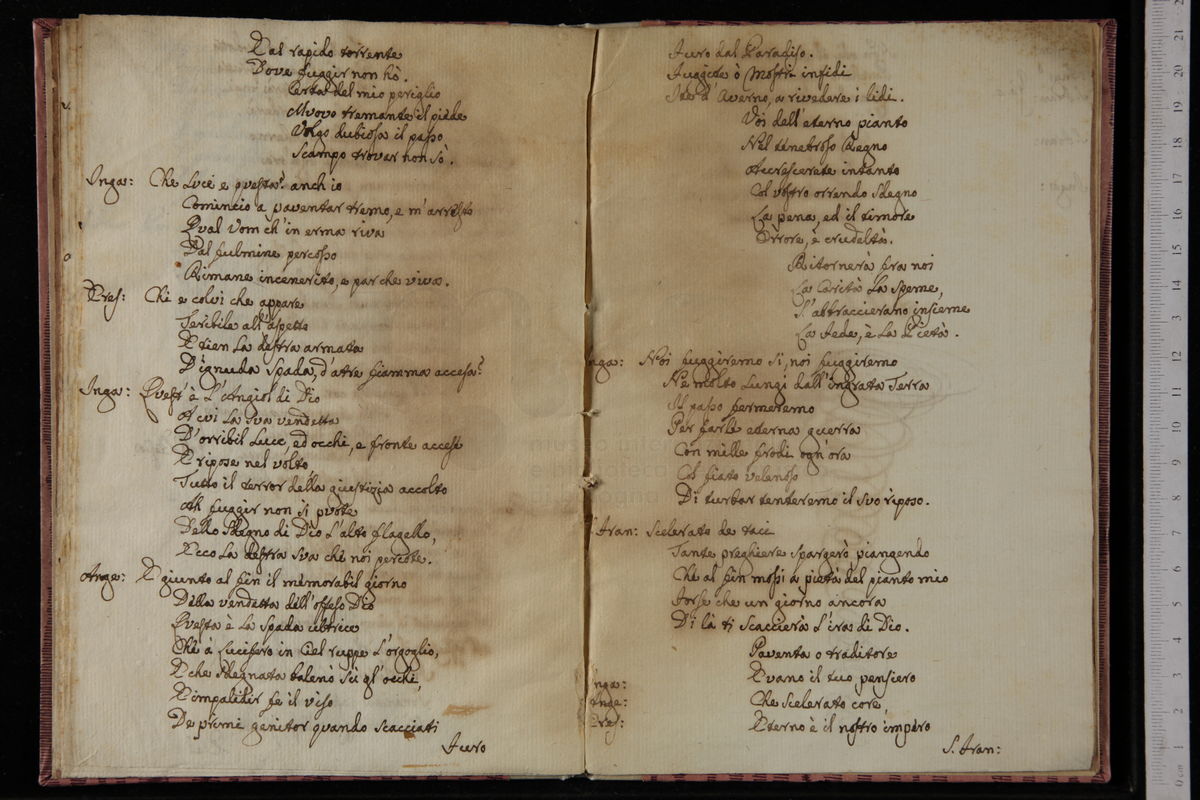 Dal rapido torrente
Dove fuggir non hò.
Certa del mio periglio
Muovo tremante il piede
Volgo dubiosa il passo
Scampo trovar non sò.
Inga: Che Luce e questa? anch io
Comincio a paventar tremo, e m'arresto
Qual Vom ch'in erma riva
Dal fulmine percosso
Rimane incenerito, e par che viva.
Pres: Chi e colvi che appare
Teribile all'aspetto
E tien La destra armata
D'ignuda Spada, d'atre fiamma accesa?
Inga: Quest'è L'Angiol di Dio
A cui La Sva vendetta
D'orribil Luce, ed occhi, e fronte accese
E ripose nel volto
Tutto il terror della giustizia accolto
Ah fuggir non si pvote
Dello Sdegno di Dio L'alto flagello,
Ecco La destra Sva che noi percote.
Ange: E giunto al fin il memorabil giorno
Della vendetta dell'offeso Dio
Questa è La Spada ultrice
Che à Lucifero in Ciel ruppe L'orgoglio,
E che Sdegnata balenò Sù gl'occhi,
E impalidir fe il viso
De primi genitor quando Scacciati
Furo
Furo dal Paradiso.
Fuggite ò Mostri infidi
Ite d'Averno, a rivedere i lidi.
Voi dell'eterno pianto
Nel tenebroso Regno
Accrescerete intanto
Col vostro orrendo Sdegno
La pena, ed il timore
Orrore, è crudeltà.
Ritornerà fra noi
La Carità La Speme,
S'abtraccierano insieme
La Fede, è La Pietà.
Inga: Noi fuggiremo Si, noi fuggiremo
Ne molto Lungi dall'ingrata Terra
Il passo fermeremo
Per farle eterna guerra
Con mille frodi ogn'ora
Col fiato velenoso
Di turbar tenteremo il Svo riposo.
S. Fran: Scelerato de taci
Tante preghiere Spargerò piangendo
Che al fin mossi a pietà del pianto mio
Forse che un giorno ancora
Di là ti Scaccierà L'ira di Dio.
Paventa o traditore
Inga: E vano il tuo pensiero
Ange: Che Scelerato core,
Pres: Eterno è il nostro impero
S. Fran: